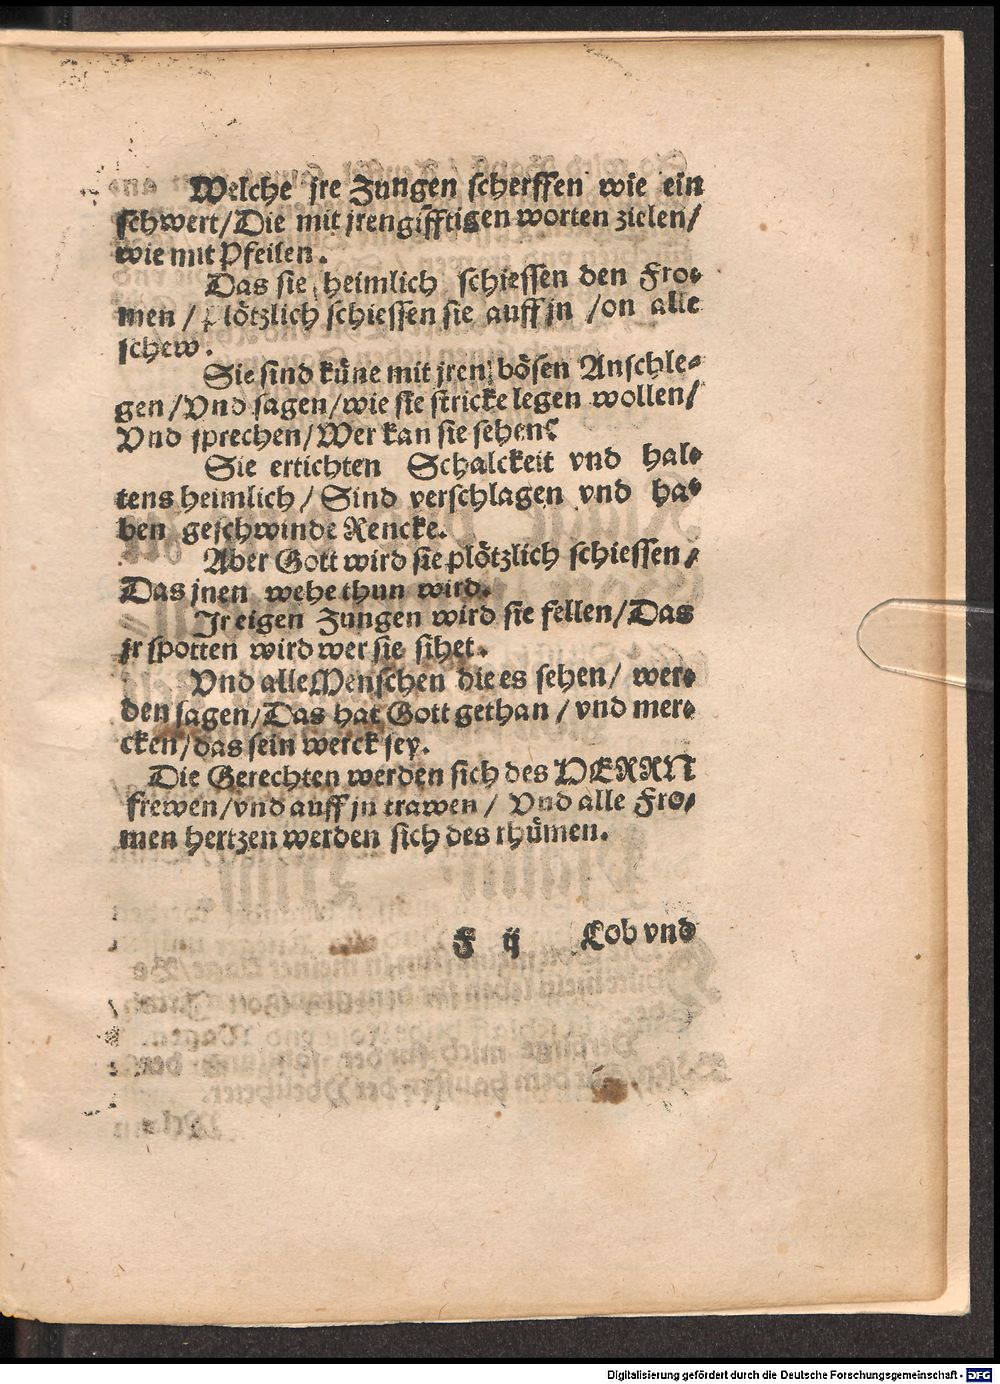 Welche jre Zungen scherffen wie ein
schwert/Die mit jren gifftigen worten zielen/
wie mit Pfeilen.
Das sie heimlich schiessen den Fro-
men / plötzlich schiessen sie auff jn /on alle
schew.
Sie sind küne mit jren bösen Anschle-
gen/Vnd sagen/wie sie stricke legen wollen/
Vnd sprechen/Wer kan sie sehen?
Sie ertichten Schalckeit vnd hal-
tens heimlich/ Sind verschlagen vnd ha-
ben geschwinde Rencke.
Aber Gott wird sie plötzlich schiessen/
Das jnen wehe thun wird.
Ir eigen Zungen wird sie fellen/Das
jr spotten wird wer sie sihet.
Vnd alle Menschen die es sehen/ wer-
den sagen/Das hat Gott gethan / vnd mer-
cken/das sein werck sey.
Die Gerechten werden sich des HERRN
frewen/vnd auff jn trawen / Vnd alle Fro-
men hertzen werden sich des rhümen.
F ij Lob vnd
Digitalisierung gefördert durch die Deutsche Forschungsgemeinschaft - DFG